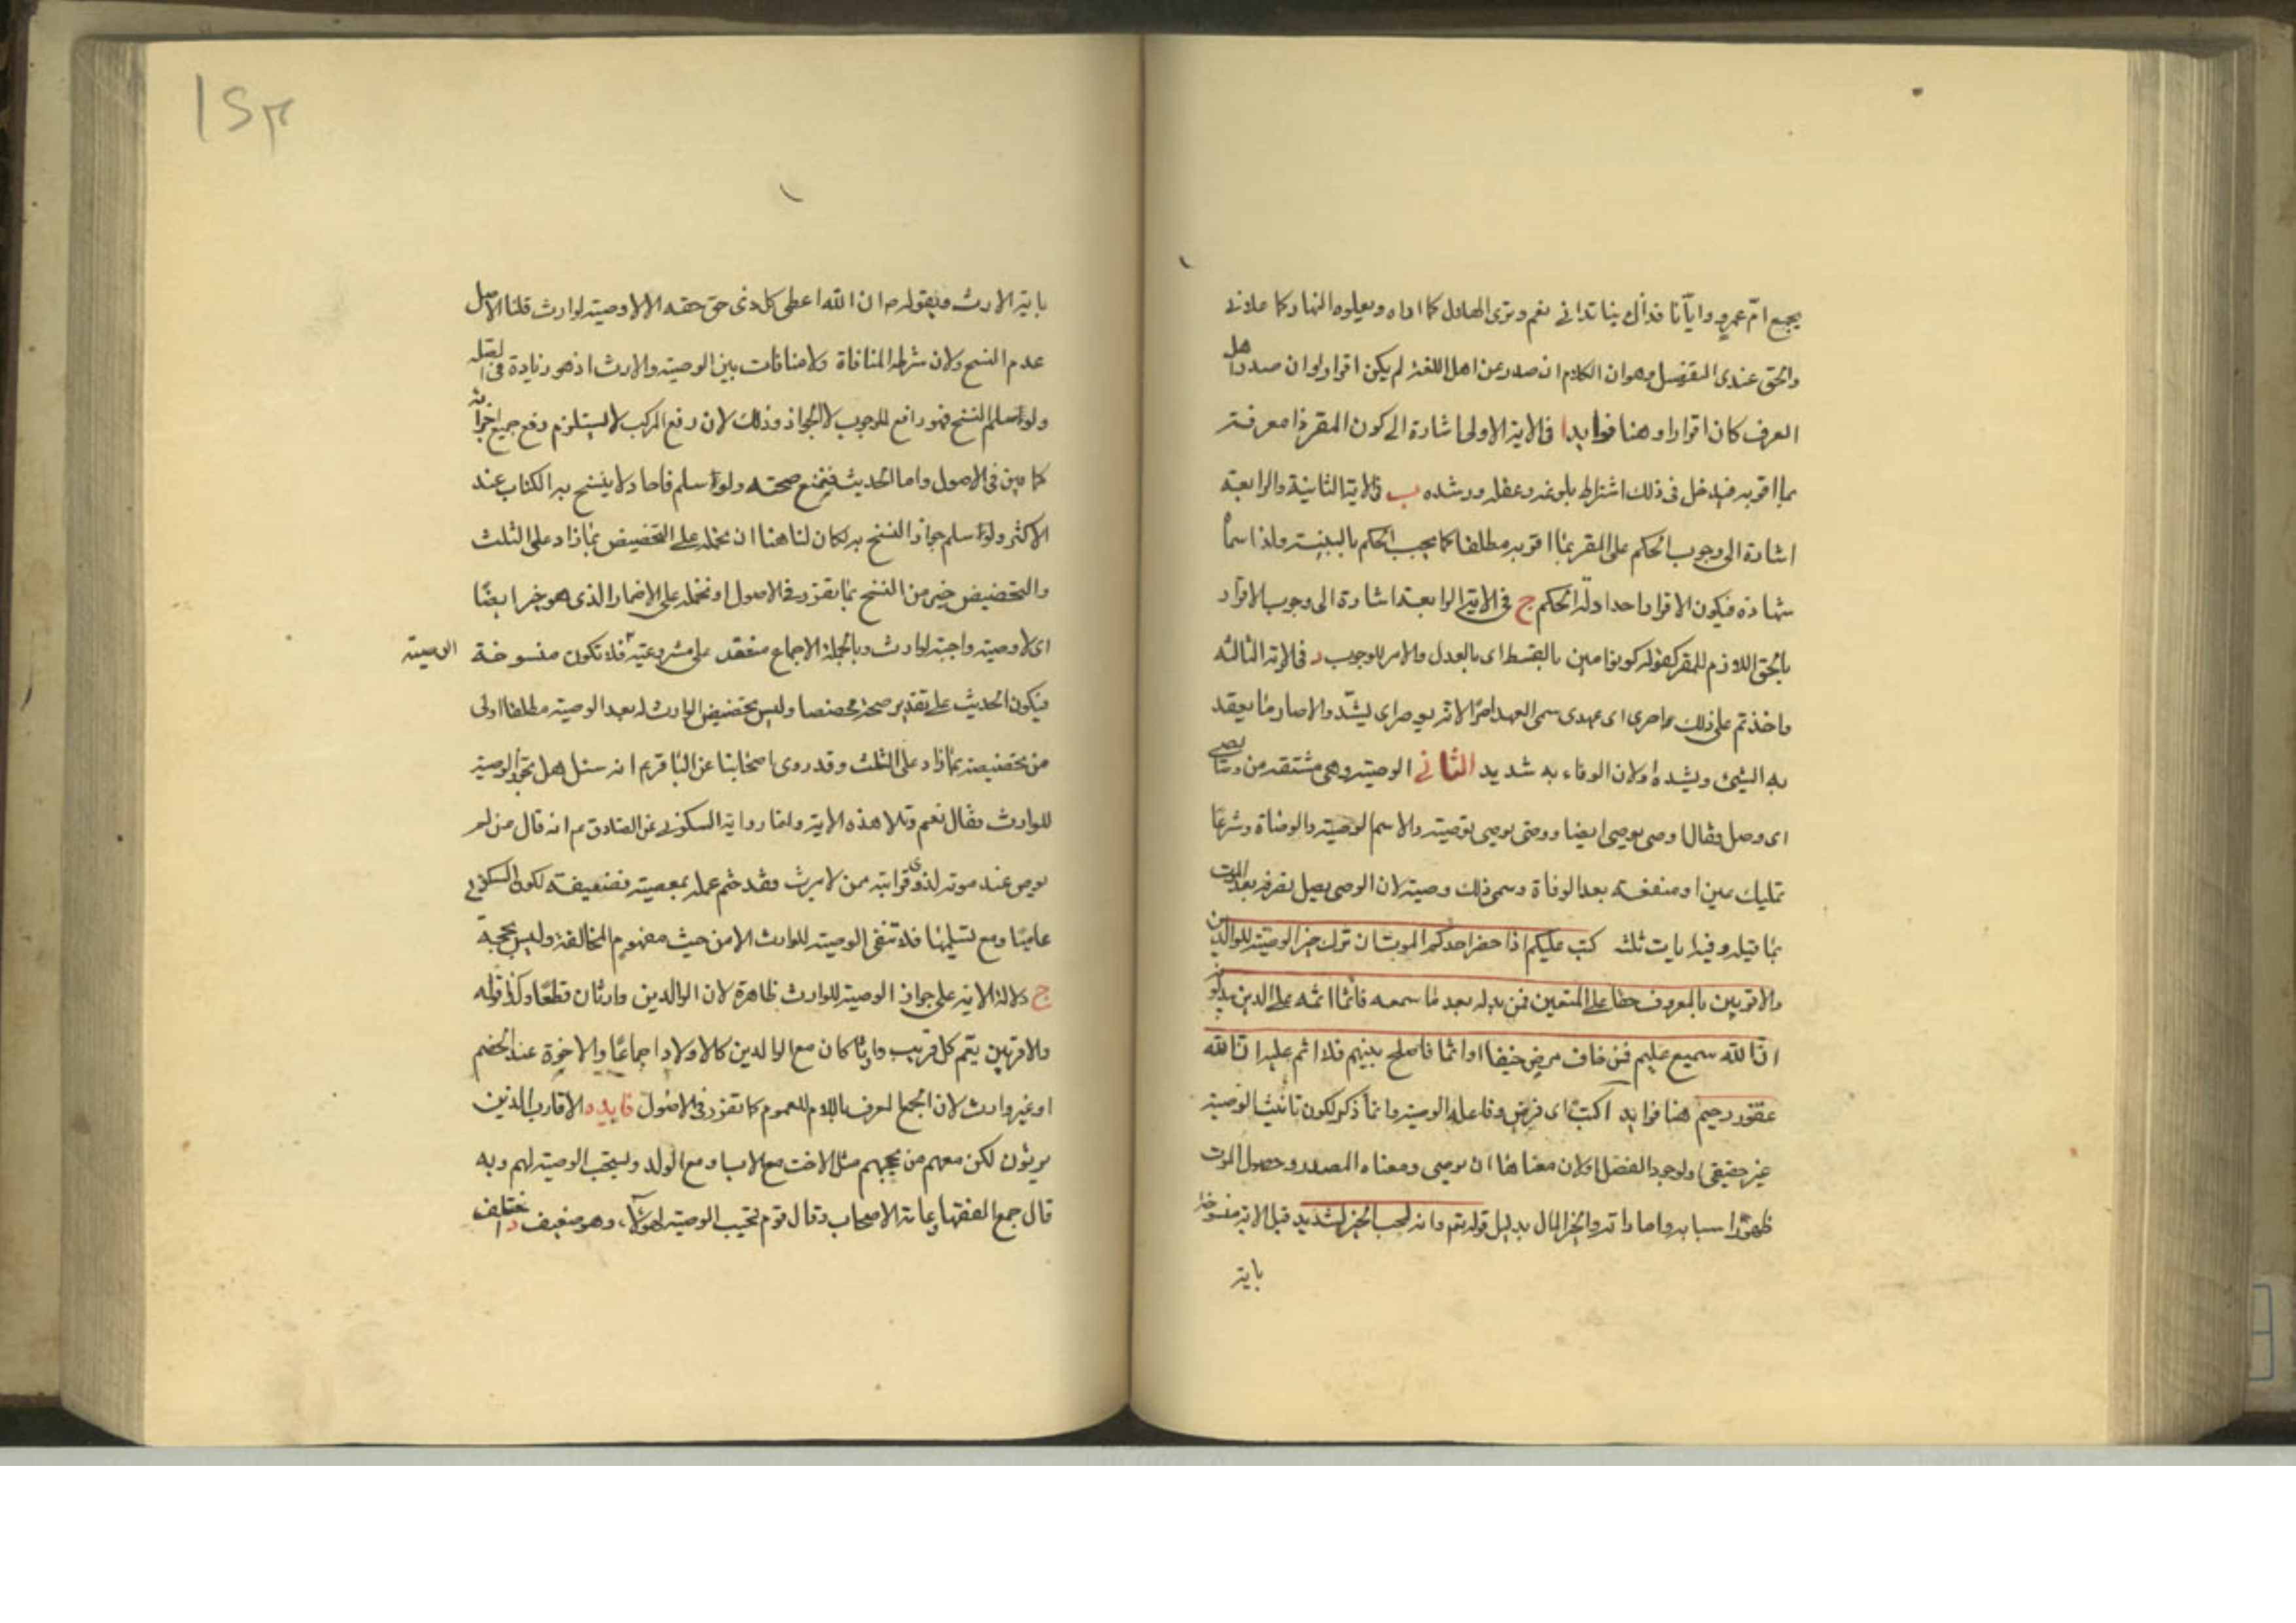 يجمع ام عمرو وايانا فذاك بنا تدانى نعم وترى الهلال كما اراه ويعلوها النهار كما علانى
والحق عندى التفصيل وهو ان الكلام ان صدر من اهل اللغة لم يكن اقرارا وان صدر من اهل
العرف كان اقرارا وهنا فوايد ا فى الاية الاولى اشارة الى كون المقر ذا معرفة
بما اقر به فيدخل فى ذلك اشتراط بلوغه وعقله ورشده ب فى الاية الثانية والرابعة
اشارة الى وجوب الحكم على المقر بما اقر به مطلقا كما يجب الحكم بالبينة ولذا سماه
شهادة فيكون الاقرار احد ادلة الحكم ج فى الاية الرابعة اشارة الى وجوب الاقرار
بالحق اللازم للمقر كقوله كونوا قوامين بالقسط اى بالعدل والامر للوجوب د فى الاية الثالثة
واخذتم على ذلكم اصرى اى عهدى سمى العهد اصرا لانه يوصر اى يشد والاصار ما يعقد
به الشئ ويشده اولان الوفاء به شديد الثانى الوصية وهى مشتقة من وصى يصى
اى وصل يقال اوصى يوصى ايصا ووصى يوصى توصية والاسم الوصية والوصاة وشرعا
تمليك عين او منفعة بعد الوفاة وسمى ذلك وصية لان الوصى يصل تصرفه بعد الموت
بما قبله وفيه ايات ثلث كتب عليكم اذا حضر احدكم الموت ان ترك خيرا الوصية للوالدين
والاقربين بالمعروف حقا على المتقين فمن بدله بعد ما سمعه فانما اثمه على الذين يبدلونه
ان الله سميع عليم فمن خاف من موص جنفا او اثما فاصلح بينهم فلا اثم عليه ان الله
غفور رحيم هنا فوايد ا كتب اى فرض وفاعله الوصية وانما ذكر لكون تانيث الوصية
غير حقيقى ولوجود الفصل اولان معناها ان يوصى ومعناه المصدر وحضور الموت
ظهور اسبابه واماراته والخير المال بدليل قوله تعم وانه لحب الخير لشديد قيل الاية منسوخة
باية
١٢٣
باية الارث وبقوله ص ان الله اعطى كل ذى حق حقه الا لا وصية لوارث قلنا الاصل
عدم النسخ ولان شرطه المنافاة ولا منافات بين الوصية والارث اذ هو زيادة فى الصلة
ولو سلم النسخ فهو رافع للوجوب لا للجواز وذلك لان رفع المركب لا يستلزم رفع جميع اجزائه
كما بين فى الاصول واما الحديث فيمنع صحته ولو سلم فاحاد لا ينسخ به الكتاب عند
الاكثر ولو سلم جواز النسخ به لكان لنا هنا ان نحمله على التخصيص بما زاد على الثلث
والتخصيص خير من النسخ بما تقرر فى الاصول او نحمله على الاضمار الذى هو خير ايضا
اى لا وصية واجبة لوارث وبالجملة الاجماع منعقد على مشروعية فلا تكون منسوخة
الوصية
فيكون الحديث على تقدير صحته مخصصا وليس تخصيص الوارث له بعد الوصية مطلقا اولى
من تخصيصه بما زاد على الثلث وقد روى اصحابنا عن الباقر ع انه سئل هل تجوز الوصية
للوارث فقال نعم وتلا هذه الاية واما رواية السكونى عن الصادق ع انه قال من لم
يوص عند موته لذوى قرابته ممن لا يرث فقد ختم عمله بمعصية فضعيفة لكون السكونى
عاميا ومع تسليمها فلا تنفى الوصية للوارث الا من حيث مفهوم المخالفة وليس بحجة
ج دلالة الاية على جواز الوصية للوارث ظاهرة لان الوالدين وارثان قطعا وكذا قوله
والاقربين يعم كل قريب وارثا كان مع الوالدين كالاولاد اجماعا والاخوة عند الخصم
او غير وارث لان الجمع المعرف باللام للعموم كما تقرر فى الاصول فايدة د الاقارب الذين
يرثون لكن معهم من يحجبهم مثل الاخت مع الاب او مع الولد ويستحب الوصية لهم وبه
قال جمع الفقها وعامة الاصحاب وقال قوم تجب الوصية لهولاء وهو ضعيف د اختلف